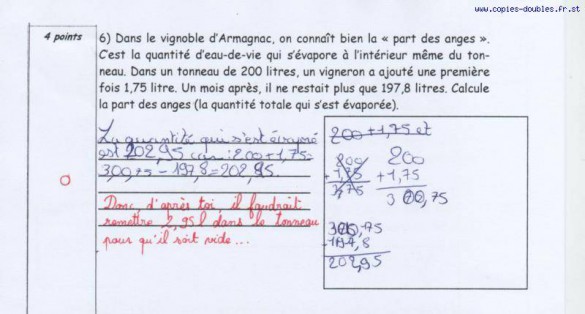 www.copies-doubles.fr.st
4 points
6) Dans le vignoble d'Armagnac, on connaît bien la « part des anges ».
C'est la quantité d'eau-de-vie qui s'évapore à l'intérieur même du ton-
neau. Dans un tonneau de 200 litres, un vigneron a ajouté une première
fois 1,75 litre. Un mois après, il ne restait plus que 197,8 litres. Calcule
la part des anges (la quantité totale qui s'est évaporée).
La quantité qui s'est évaporé
est 202,95 car : 200 + 1,75 =
300,75 - 197,8 = 202,95.
0
Donc, d'après toi, il faudrait
remettre 2,95 l dans le tonneau
pour qu'il soit vide ...
200 + 1,75 et
200
+ 1,75
3,75
200
+ 1,75
300,75
300,75
- 197,8
202,95